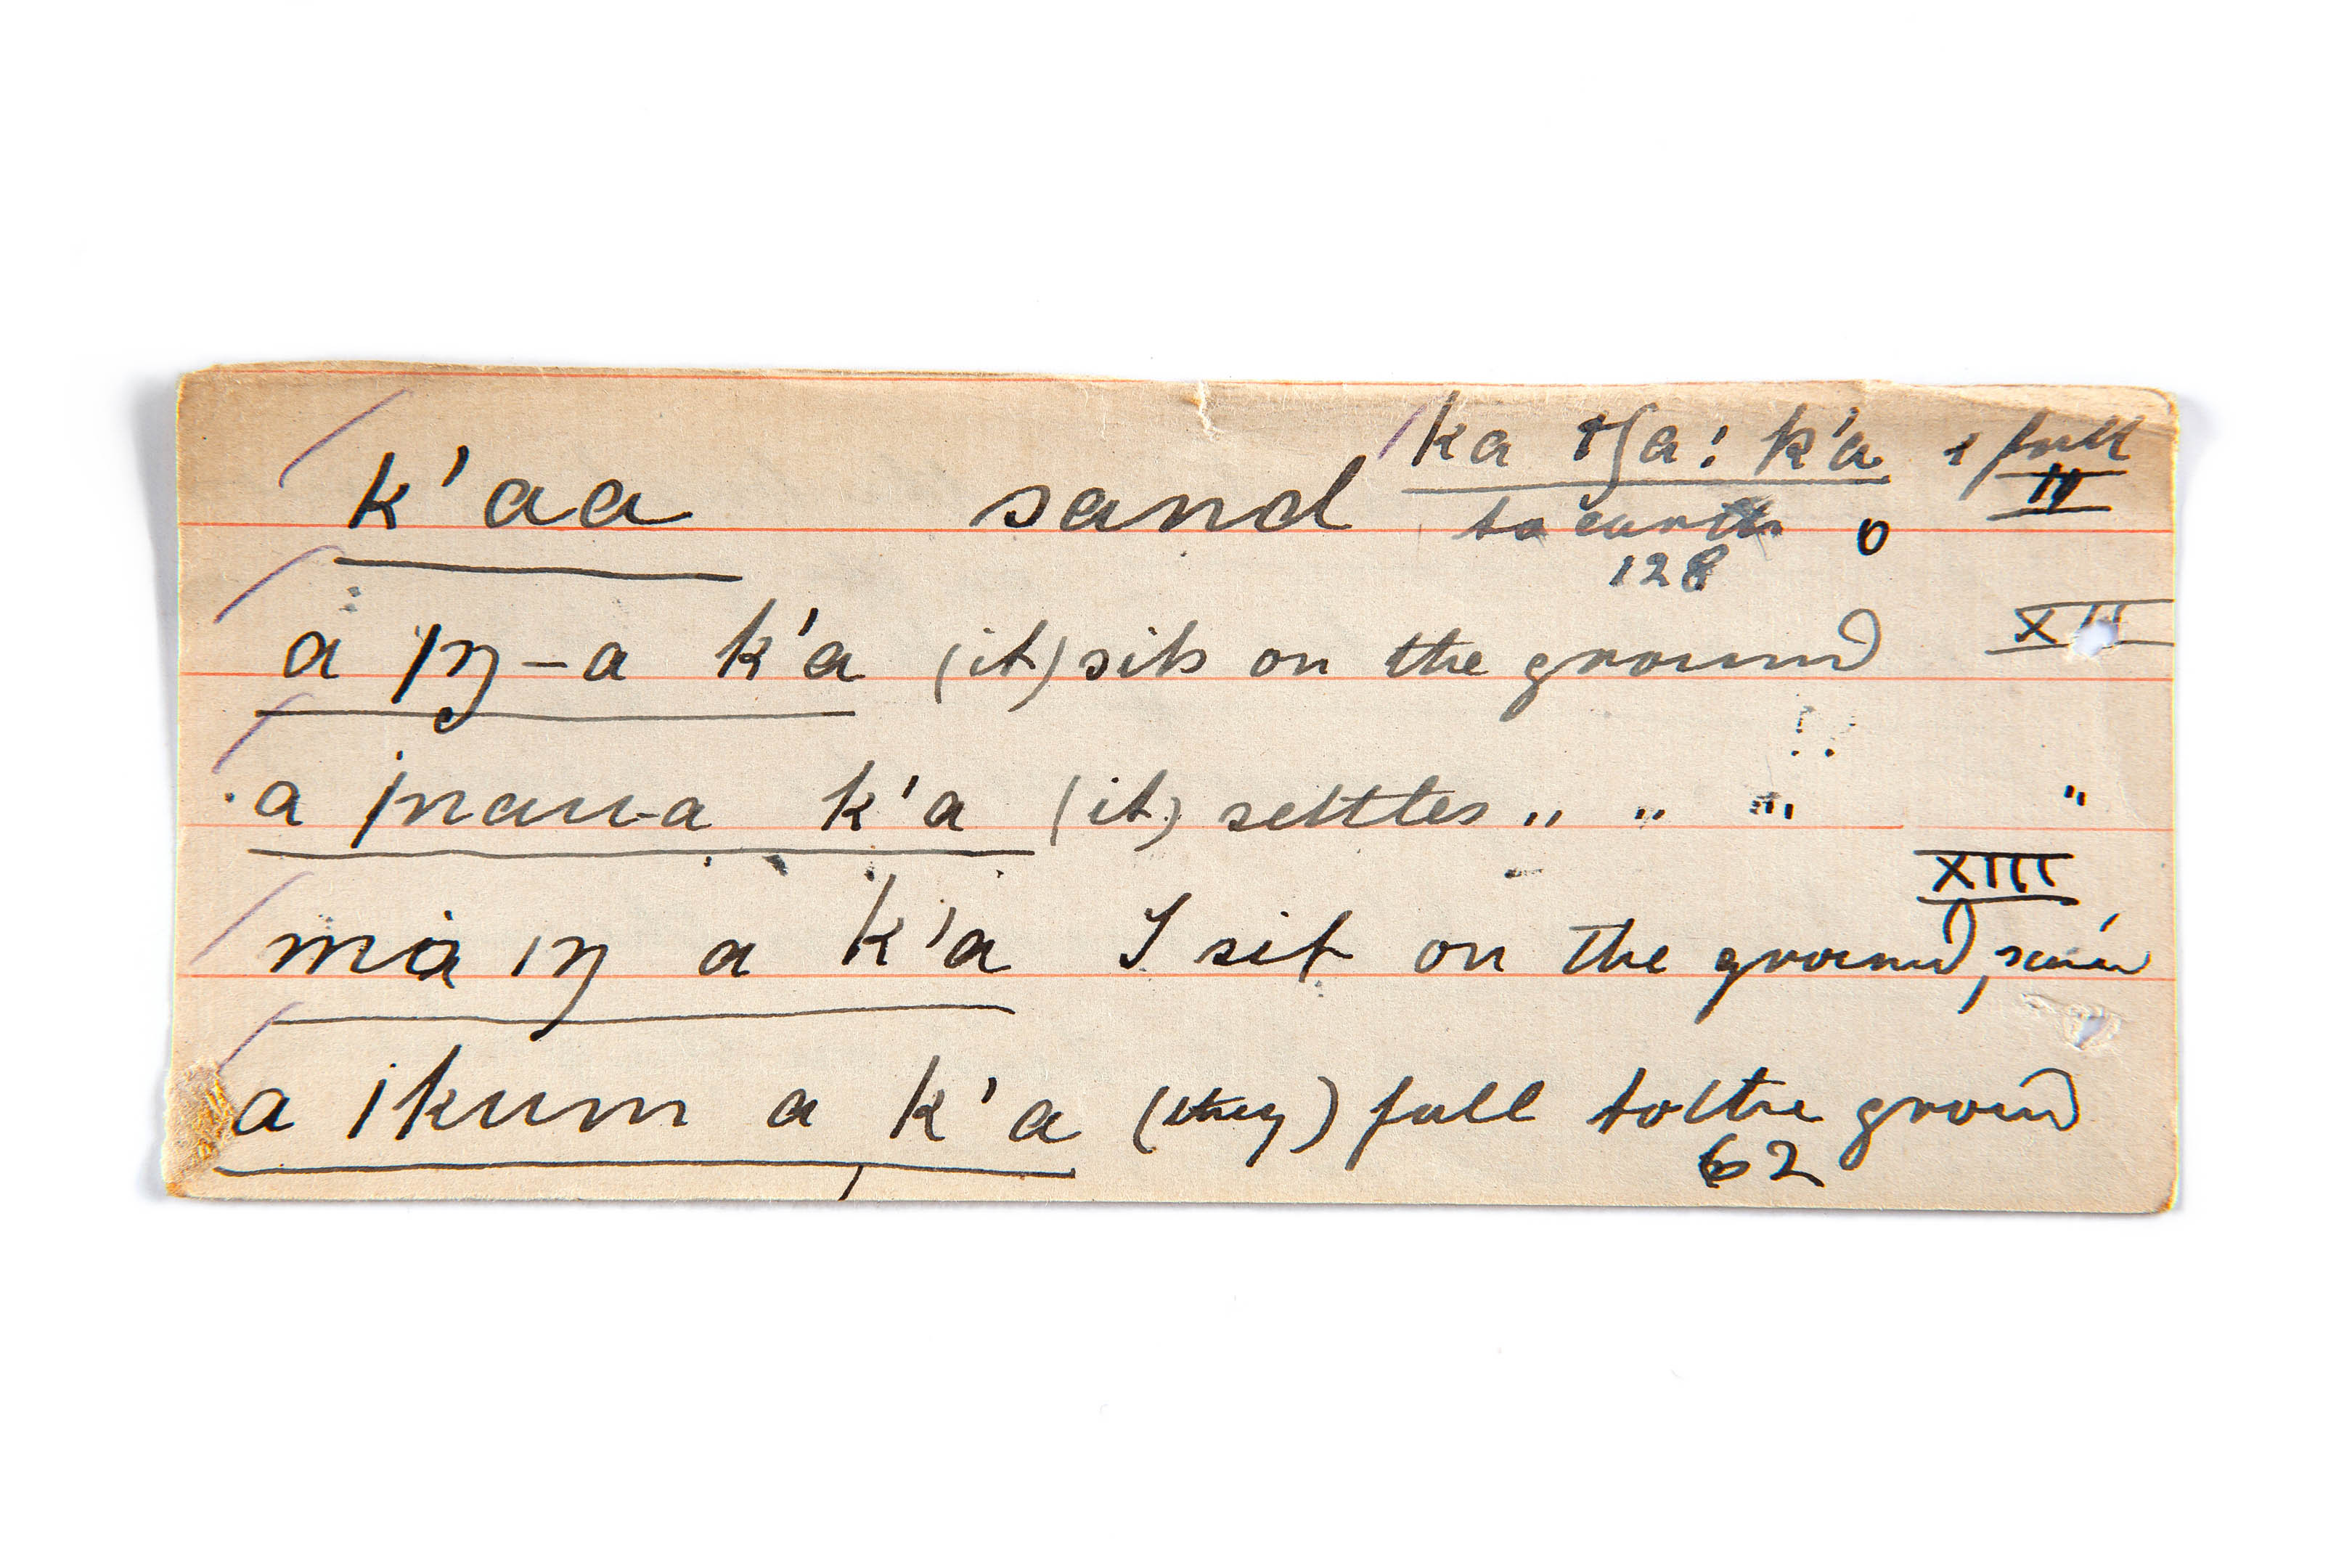 k'aa sand ka ʃa: k'a I fall IV
to earth 0
128
a |ŋ-a k'a (it) sits on the ground XII
a |nau-a k'a (it) settles " " " "
XIII
ma |ŋ a k'a I sit on the ground,
a |kum a k'a (they) fall to the ground
62